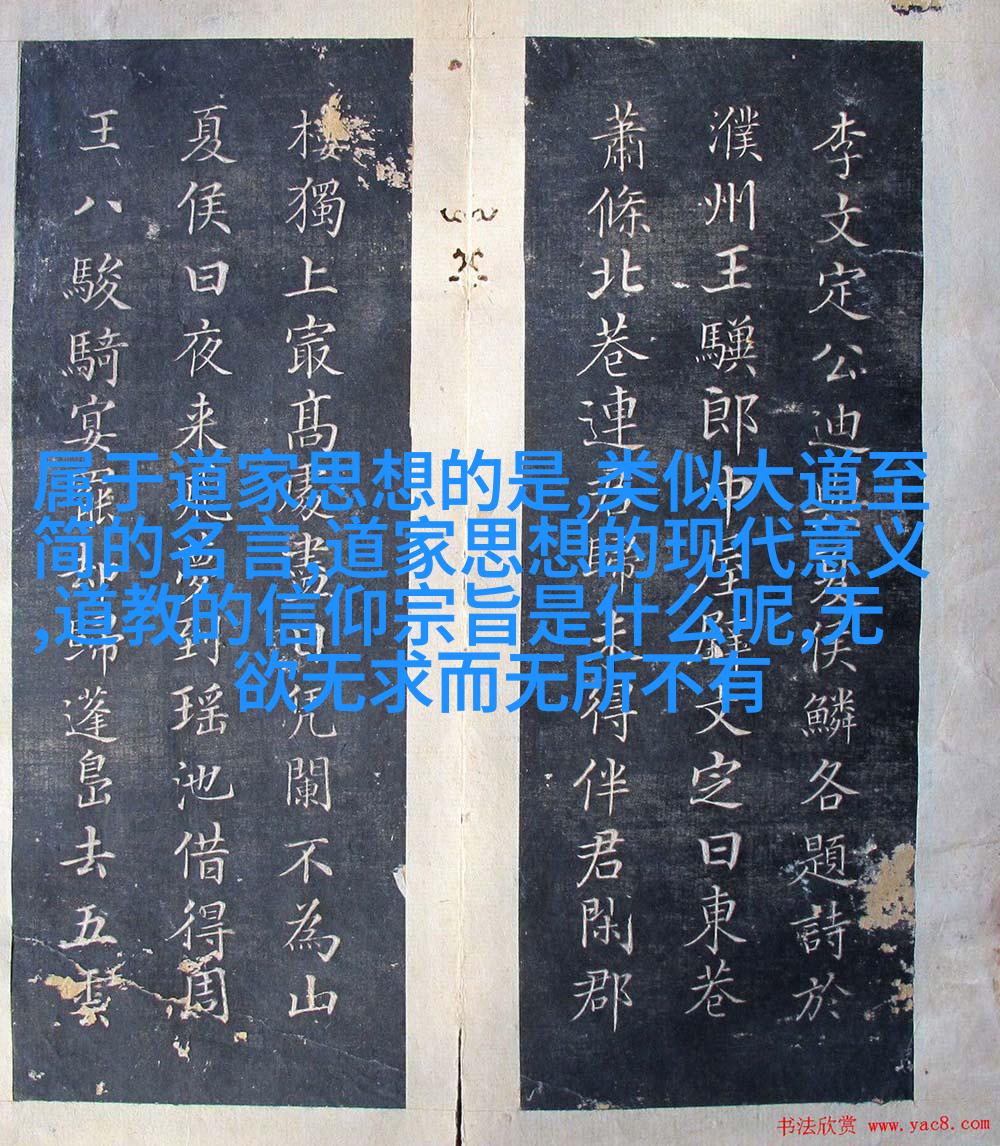 李文定公迪夏侯鱗各題詩於
濮州王驥郎中屋壁文定曰東巷
蕭條北巷連君歸未得伴君閑郡
樓獨上冣髙處盡日凭闌不為山
夏侯曰夜来魂夢到瑶池借得周
王八駿騎宴罷却歸蓬島去五雲
属于道家思想的是,类似大道至
简的名言,道家思想的现代意义
,道教的信仰宗旨是什么呢,无
欲无求而无所不有
书法欣赏 www.yac8.com